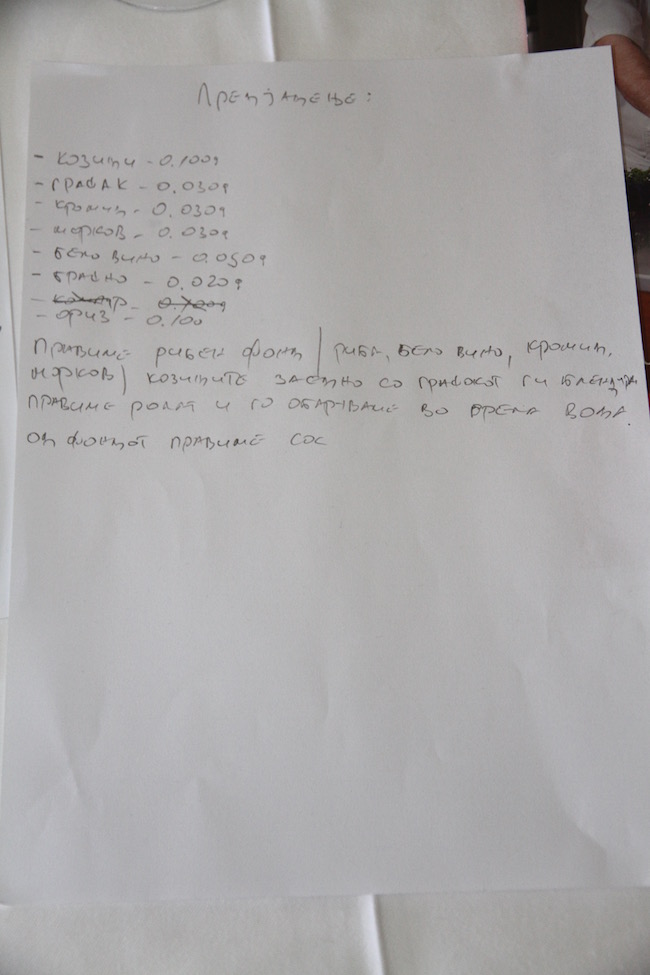 Предјадење:
- козици - 0.100g
- грашак - 0.030g
- кромид - 0.030g
- морков - 0.030g
- бело вино - 0.050g
- брашно - 0.020g
- ориз - 0.100
Правиме рибен фонд / риба, бело вино, кромид,
морков / козиците заедно со грашокот ги блендира
правиме ролат и го обариваме во врела вода.
од фондот правиме сос